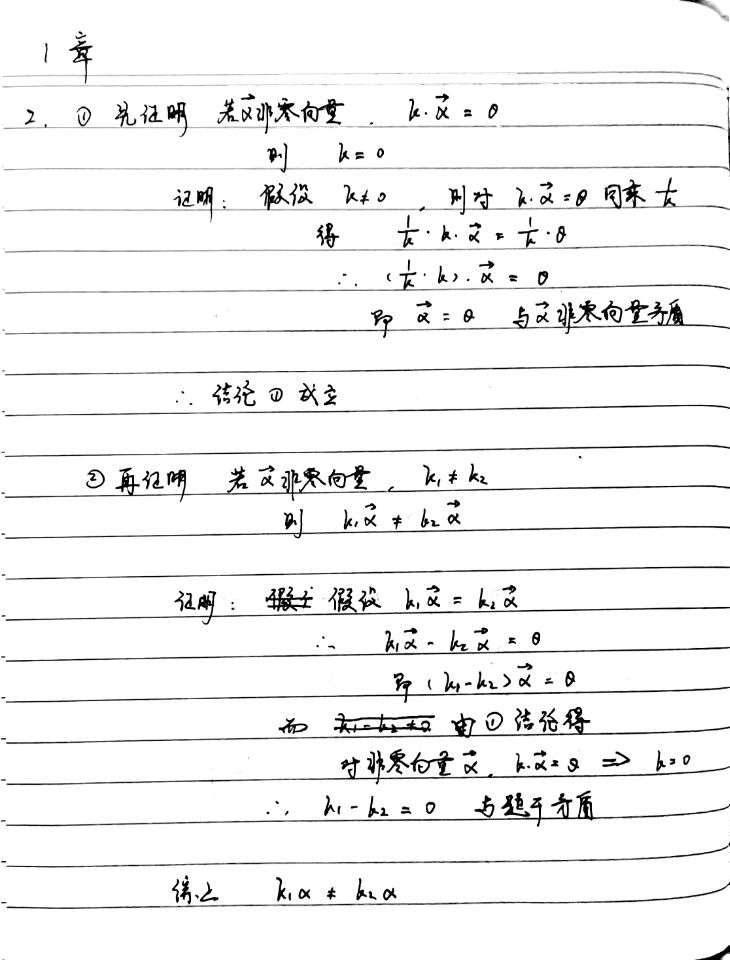 1章
2. ① 先证明 若α⃗非零向量, k·α⃗ = θ
则 k = 0
证明: 假设 k≠0, 则对 k·α⃗=θ 同乘 1/k
得 1/k · k · α⃗ = 1/k · θ
∴ (1/k · k) · α⃗ = θ
即 α⃗ = θ 与α⃗非零向量矛盾
∴ 结论①成立
② 再证明 若α⃗非零向量, k₁ ≠ k₂
则 k₁α⃗ ≠ k₂α⃗
证明: 假设 k₁α⃗ = k₂α⃗
∴ k₁α⃗ - k₂α⃗ = θ
即 (k₁-k₂)α⃗ = θ
而 由①结论得
对非零向量α⃗, k·α⃗=θ ⇒ k=0
∴ k₁-k₂ = 0 与题干矛盾
综上 k₁α ≠ k₂α